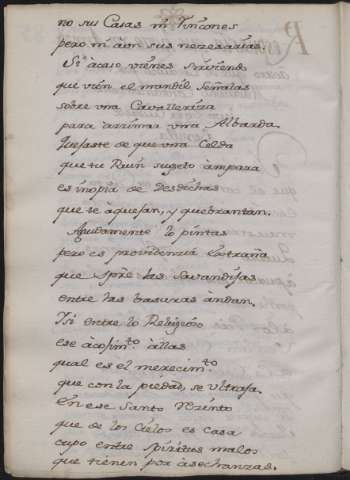 no sus Casas ni rincones
pero ni aun sus nezesarias.
Si acaso vienes sirviendo
que vien el mandil señalas
sobre una Cavalleriza
para arrimar una Albarda.
que una Celda
que tu Ruin sugeto ampara
es inopia de Desdichas
que te aquejan, y quebrantan.
Agudamente lo pintas
pero es providencia extraña
que spre. las Savandijas
entre las basuras andan.
Y si entre lo Religioso
ese acojim.to allas
qual es el merecim.to
que con la piedad, se ultraja.
En ese Santo Rezinto
que de los Cielos es Casa
cupo entre spiritus malos
que tienen por asechanzas.